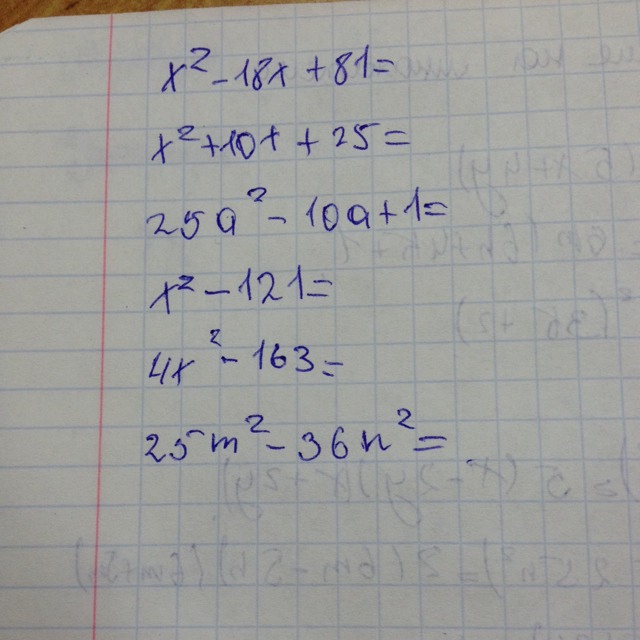 x² - 18x + 81 =
x² + 10x + 25 =
25a² - 10a + 1 =
x² - 121 =
4x² - 163 =
25m² - 36n² =